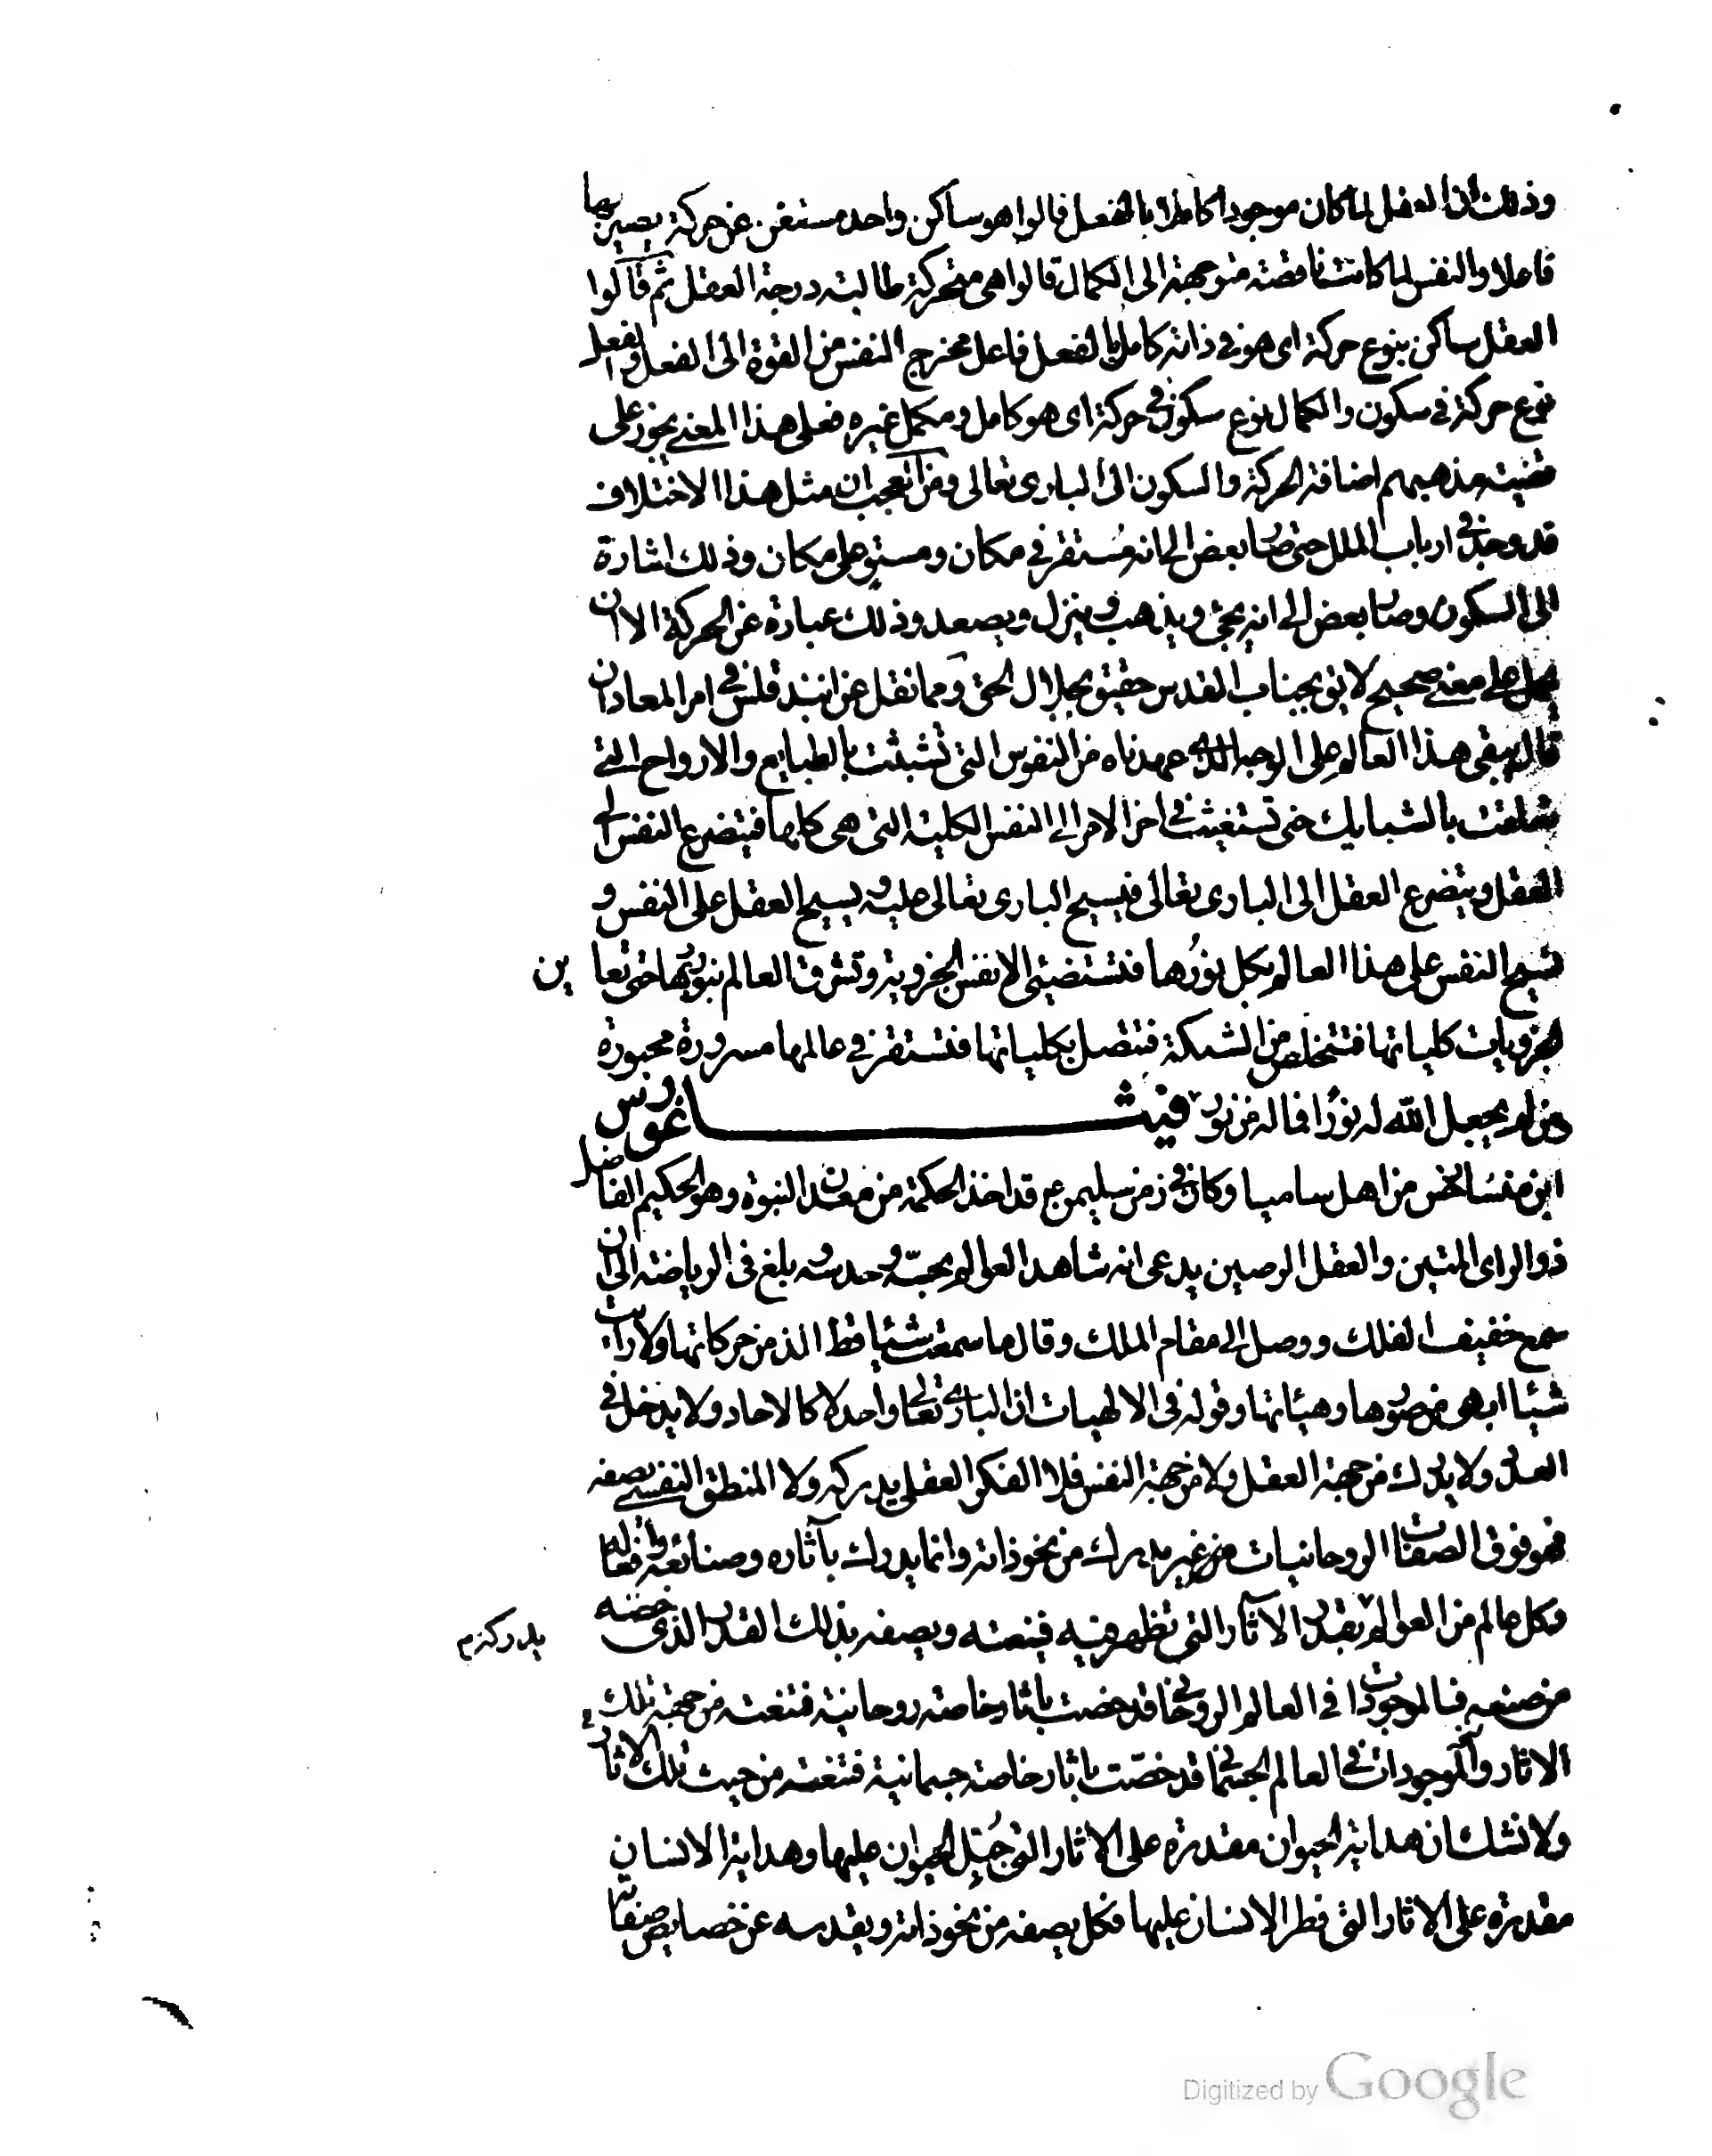 وذلك ان العقل لما كان موجودا كاملا بالفعل قالوا هو ساكن واحد مستغن عن حركة يصير بها
فاعلا والنفس لما كانت ناقصة متوجهة الى الكمال قالوا هى متحركة طالبة درجة العقل ثم قالوا
العقل ساكن بنوع حركة اى هو فى ذاته كامل بالفعل فاعل مخرج النفس من القوة الى الفعل والفعل
نوع حركة فى سكون والكمال نوع سكون فى حركة اى هو كامل ومكمل غيره فعلى هذا المعنى يجوز على
قضية مذهبهم اضافة الحركة والسكون الى البارى تعالى ومن العجب ان مثل هذا الاختلاف
قد وجد فى ارباب الملل حتى صار بعض الى انه مستقر فى مكان ومستو على مكان وذلك اشارة
الى السكون وصار بعض الى انه يجئ ويذهب وينزل ويصعد وذلك عبارة عن الحركة الا ان
يحمل على معنى صحيح لايق بجناب القدس حقيق بجلال الحق ومما نقل عن انبدقلس فى امر المعاد ان
قال يبقى هذا العالم على الوجه الذى عهدناه من النفوس التى تشبثت بالطبايع والارواح التى
تعلقت بالشبايك حتى تستغيث فى اخر الامر الى النفس الكلية التى هى كلها فيتضرع النفس الى
العقل ويتضرع العقل الى البارى تعالى فيسيح البارى تعالى عليه ويسيح العقل على النفس و
تسيح النفس على هذا العالم بكل نورها فتستضيئ الانفس الجزوية وتشرق العالم بنور ربها حتى تعا ين
الجزويات كلياتها فتتخلص من الشبكة فتتصل بكلياتها فتستقر فى عالمها مسرورة محبورة
ومن لم يجعل الله له نورا فما له من نور فيثاغورس
ابن منسارخس من اهل ساميا وكان فى زمن سليمن ع قد اخذ الحكمة من معدن النبوة وهو الحكيم الفاضل
ذو الراى المتين والعقل الرصين يدعى انه شاهد العوالم بحسه وحدسه وبلغ فى الرياضة الى ان
سمع خفيف الفلك ووصل الى مقام الملك وقال ما سمعت شيئا قط الذ من حركاتها ولا رايت
شيئا ابهى من صورها وهيئاتها وقوله فى الالهيات ان البارى تعالى واحد لا كالاحاد ولا يدخل فى
العدد ولا يدرك من جهة العقل ولا من جهة النفس فلا الفكر العقلى يدركه ولا المنطق النفسى يصفه
فهو فوق الصفات الروحانيات من غير مدرك من نحو ذاته وانما يدرك بآثاره وصنائعه وافعاله
وكل عالم من العوالم بقدر الآثار التى تظهر فيه فينعته ويصفه بذلك القدر الذى خصه
يدركه م
من صنعه فالموجودات فى العالم الروحانى قد خصت باثار خاصة روحانية فتنعته من جهة تلك
الاثار والموجودات فى العالم الجسمانى قد خصت باثار خاصة جسمانية فتنعته من حيث تلك الاثار
ولا نشك ان هداية الحيوان مقدرة على الاثار التى جبل الحيوان عليها وهداية الانسان
مقدرة على الاثار التى فطر الانسان عليها فكل يصفه من نحو ذاته ويقدسه عن خصايص صفاته
Digitized by Google